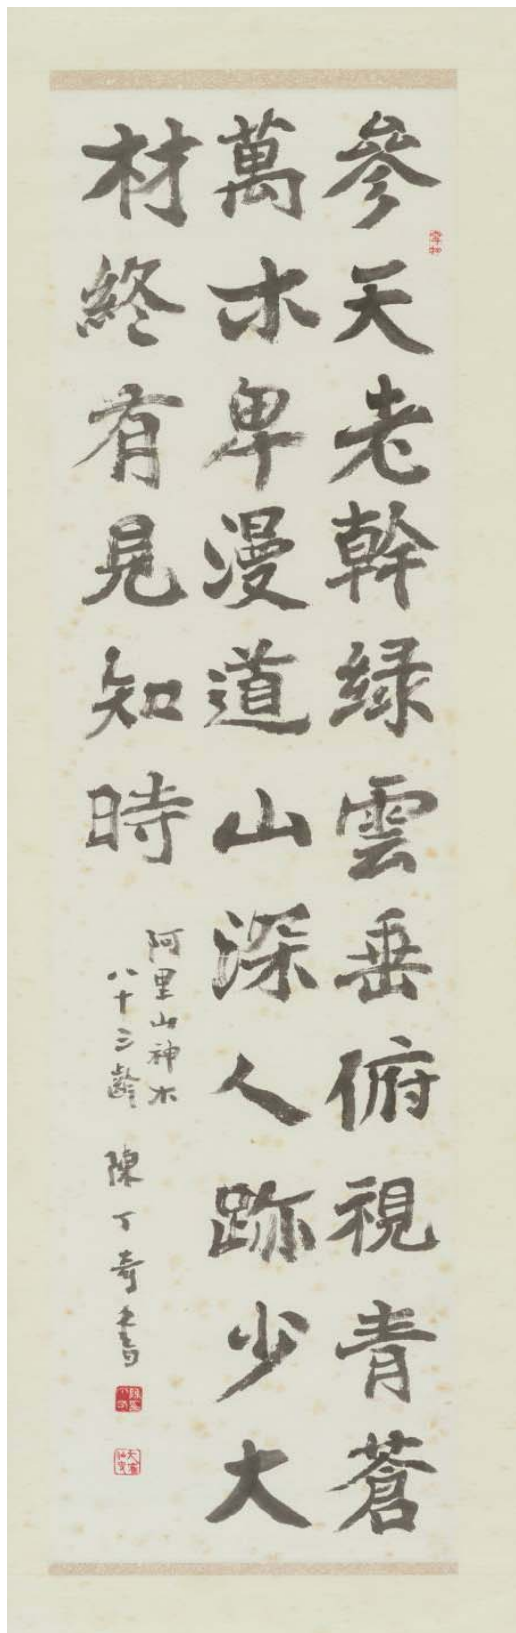 參天老幹綠雲垂俯視青蒼
萬木卑漫道山深人跡少大
材終有見知時
阿里山神木
八十三齡 陳丁奇書